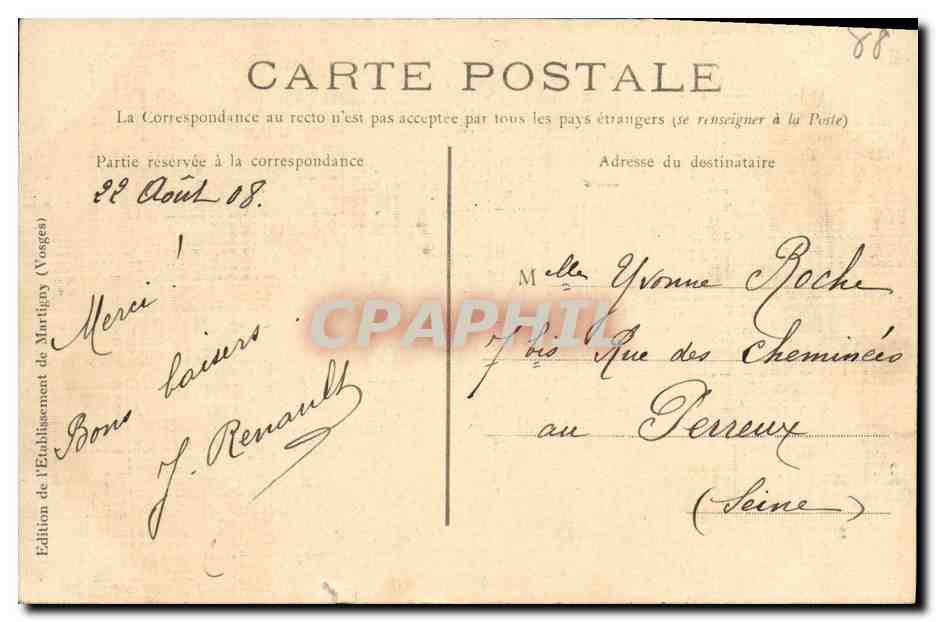 88
CARTE POSTALE
La Correspondance au recto n'est pas acceptée par tous les pays étrangers (se renseigner à la Poste)
Partie réservée à la correspondance
22 Août 08.
Merci !
Bons baisers.
J. Renault
Edition de l'Etablissement de Martigny (Vosges)
Adresse du destinataire
Melle Yvonne Roche
7 bis Rue des Cheminées
au Perreux
(Seine)
CPAPHIL